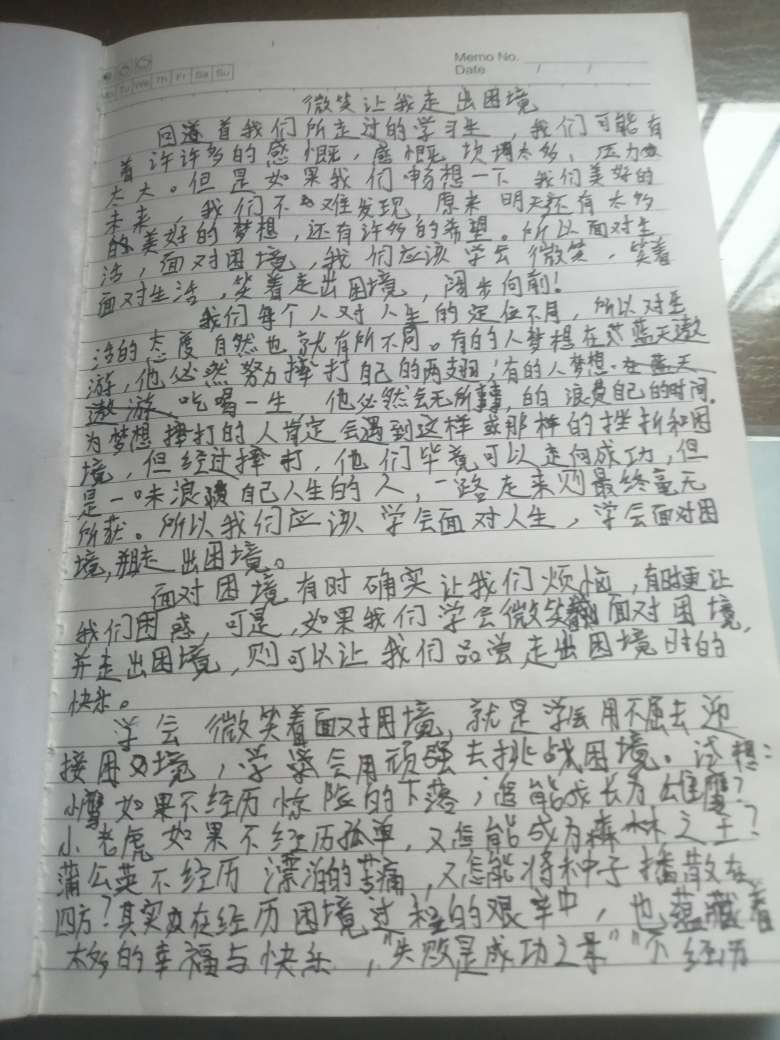 Memo No.
Mo Tu We Th Fr Sa Su
Date / /
微笑让我走出困境
回首我们所走过的学习生，我们可能有
着许许多的感慨，感慨坎坷太多、压力
太大。但是如果我们畅想一下我们美好的
未来，我们不难发现，原来明天还有太多
的美好的梦想，还有许多的希望。所以面对生
活，面对困境，我们应该学会微笑，笑着
面对生活，笑着走出困境，阔步向前！
我们每个人对人生的定位不同，所以对生
活的态度自然也就有所不同。有的人梦想在蓝天遨
游，他必然努力摔打自己的两翅；有的人梦想
吃喝一生 他必然会无所事事，的浪费自己的时间。
为梦想摔打的人肯定会遇到这样或那样的挫折和困
境，但经过摔打，他们毕竟可以走向成功，但
是一味浪费自己人生的人，一路走来则最终毫无
所获。所以我们应该学会面对人生，学会面对困
境，走出困境。
面对困境有时确实让我们烦恼，有时更让
我们困惑，可是，如果我们学会微笑着面对困境，
并走出困境，则可以让我们品尝走出困境时的
快乐。
学会微笑着面对困境，就是学会用不屈去迎
接困境，学会用顽强去挑战困境。试想：
小鹰如果不经历惊险的下落，怎能成长为雄鹰？
小老虎如果不经历孤单，又怎能成为森林之王？
蒲公英不经历漂泊的苦痛，又怎能将种子播散在
四方？其实在经历困境过程的艰辛中，也蕴藏着
太多的幸福与快乐，“失败是成功之母”“不经历